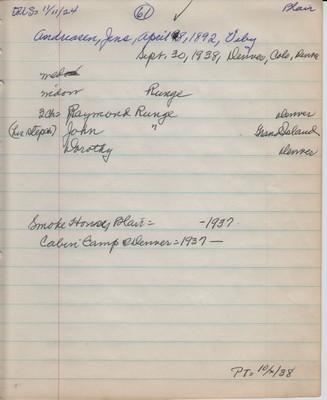 61
Blair
Andreasen, Jens, April 8, 1892, Viby
Sept. 30, 1938, Denver, Colo, Denver
widow Runge
3 chs Raymond Runge Denver
(his steps) John " Grand Island
Dorothy Denver
Smoke House Blair = -1937
Cabin Camp Denver = 1937 -
PT = 10/6/38